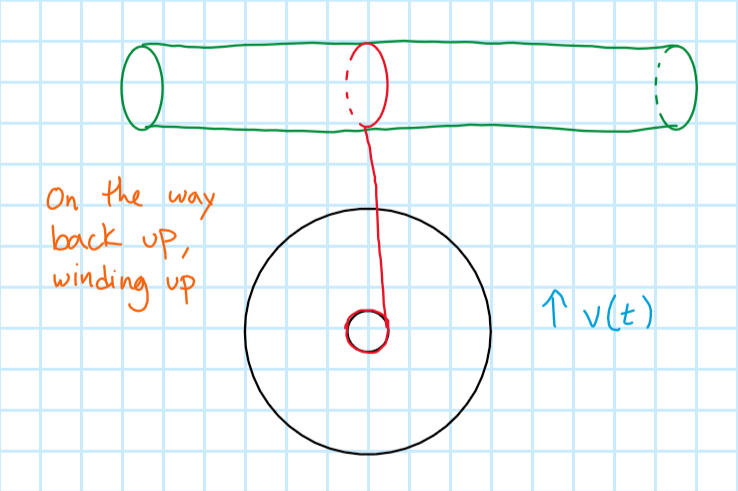 On the way
back up,
winding up
↑ v(t)